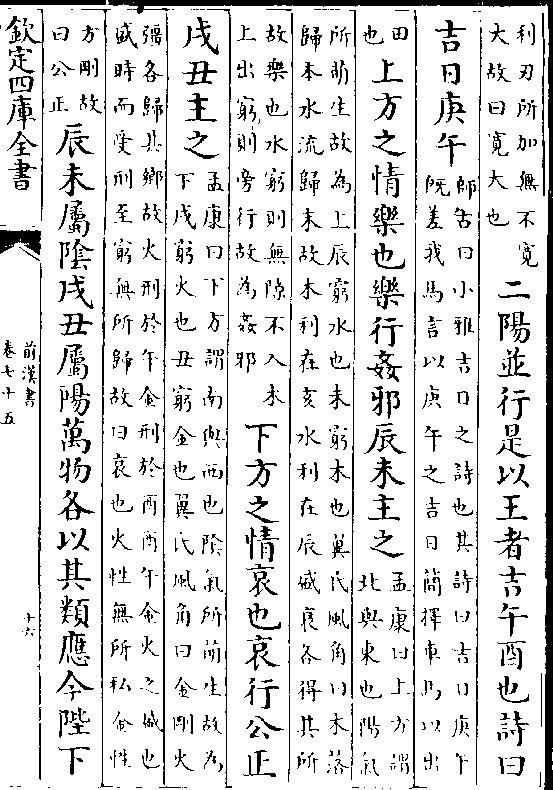 利刃所加無不寬
大故曰寬大也
二陽並行是以王者吉午酉也詩曰
吉日庚午
師古曰小雅吉日之詩也其詩曰吉日庚午
既差我馬言以庚午之吉日簡擇車馬以出
田
也
上方之情樂也樂行姦邪辰未主之
孟康曰上方謂
北與東也陽氣
所萌生故為上辰窮水也未窮木也翼氏風角曰木落
歸本水流歸末故木利在亥水利在辰盛衰各得其所
故樂也水窮則無隙不入木
上出窮則旁行故為姦邪
下方之情哀也哀行公正
戌丑主之
孟康曰下方謂南與西也陰氣所萌生故為
下戌窮火也丑窮金也翼氏風角曰金剛火
彊各歸其鄉故火刑於午金刑於酉酉午金火之盛也
盛時而受刑至窮無所歸故曰哀也火性無所私金性
方剛故
曰公正
辰未屬陰戌丑屬陽萬物各以其類應今陛下
欽定四庫全書
前漢書
卷七十五
十六